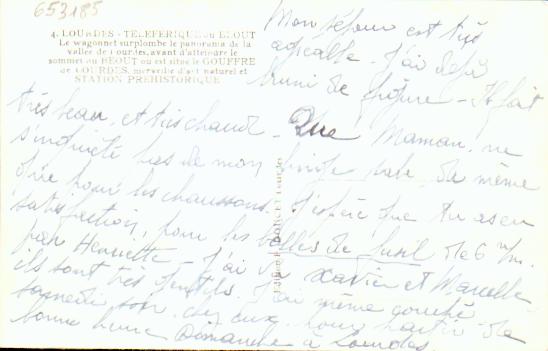 653185
4. LOURDES - TÉLÉFÉRIQUE du BÉOUT
Le wagonnet surplombe le panorama de la
vallée de Lourdes, avant d'atteindre le
sommet du BÉOUT où est situé le GOUFFRE
de LOURDES, merveille d'art naturel et
STATION PRÉHISTORIQUE
Mon séjour est très
agréable. J'ai déjà
bruni de figure - Il fait
très beau, et très chaud - Que Maman ne
s'inquiète pas de mon de même
que pour les chaussons. J'espère que tu as eu
satisfaction, pour les balles de fusil de 6 m/m.
par Henriette - J'ai vu Xavier et Marcelle
ils sont très gentils. J'ai même couché
samedi soir chez eux pour partir de
bonne heure Dimanche à Lourdes